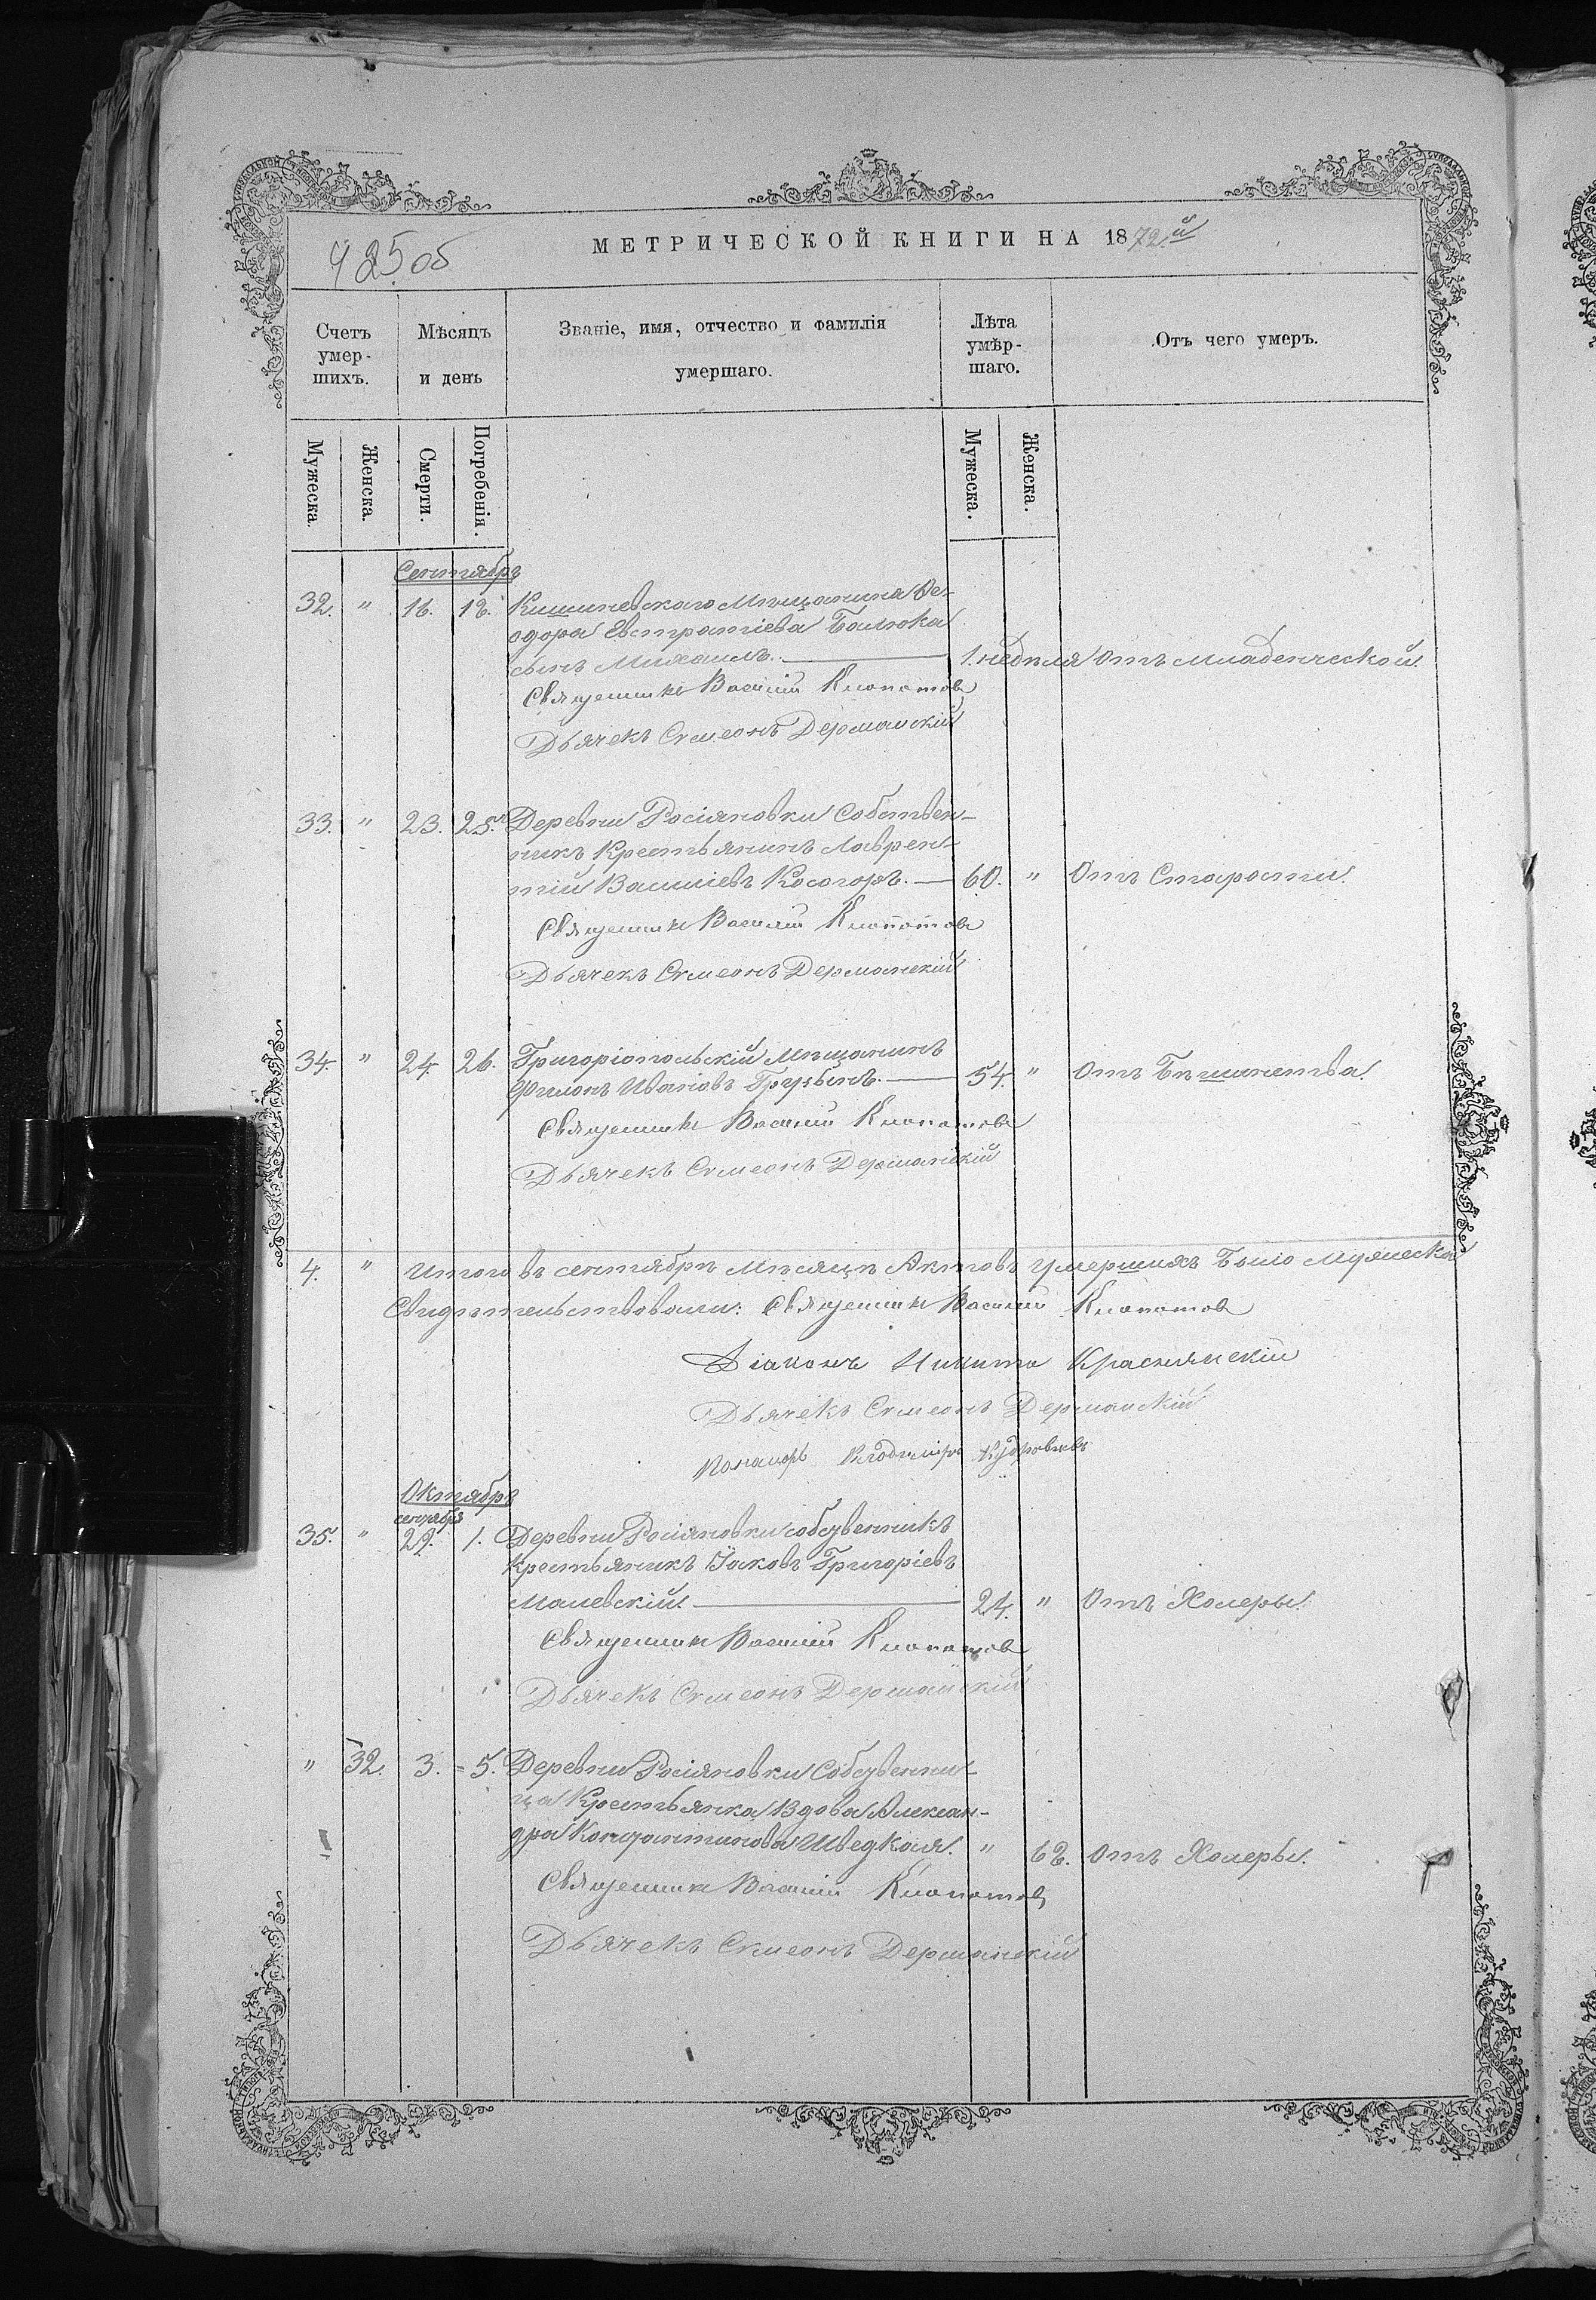 425 об
МЕТРИЧЕСКОЙ КНИГИ НА 1872.й
Счетъ умер-шихъ.
Мѣсяцъ и день
Званіе, имя, отчество и фамилія умершаго.
Лѣта умѣр-шаго.
Отъ чего умеръ.
Мужеска.
Женска.
Смерти.
Погребенія.
Мужеска.
Женска.
Сентябрь
32. " 16. 18. Кишиневскаго Мѣщанина Ѳе-
одора Евстратіева
сынъ Михаилъ. 1. недѣля Отъ младенческой.
Священникъ Василій Клопотовъ
Дьячекъ Симеонъ Дерманскій
33. " 23. 25. Деревни Росіяновки Собствен-
никъ Крестьянинъ Лаврен-
тій Василіевъ Косогоръ. 60. " Отъ Старости.
Священникъ Василій Клопотовъ
Дьячекъ Симеонъ Дерманскій
34. " 24. 26. Григоріопольскій Мѣщанинъ
Филонъ Ивановъ 54. " Отъ Бѣшенства.
Священникъ Василій Клопотовъ
Дьячекъ Симеонъ Дерманскій
4. " Итого въ сентябрѣ Мѣсяцѣ Актовъ Умершихъ Было Мужеска
Свидѣтельствовали: Священникъ Василій Клопотовъ
Діаконъ Никита Краснянскій
Дьячекъ Симеонъ Дерманскій
Понамарь Владиміръ
Октябрь
сентября
35. " 29. 1. Деревни Росіяновки собственникъ
Крестьянинъ Іаковъ Григоріевъ
Малевскій. 24. " Отъ Холеры.
Священникъ Василій Клопотовъ
Дьячекъ Симеонъ Дерманскій
" 32. 3. 5. Деревни Росіяновки Собственни-
ца Крестьянка Вдова Алексан-
дра Константинова Шведкая. " 62. Отъ Холеры.
Священникъ Василій Клопотовъ
Дьячекъ Симеонъ Дерманскій